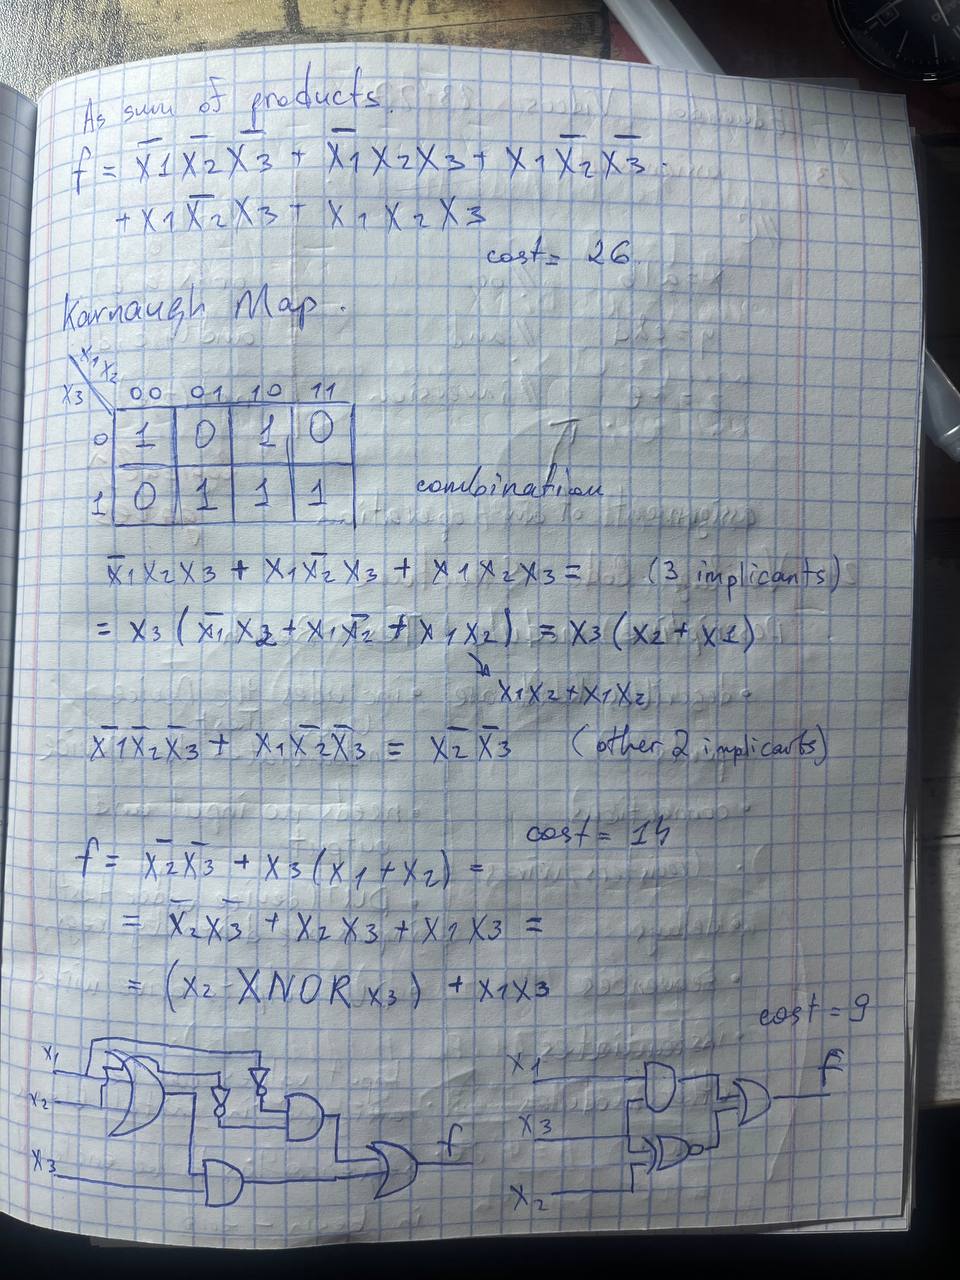 As sum of products.
f = x̅1x̅2x̅3 + x̅1x2x3 + x1x̅2x̅3 .
+ x1x̅2x3 + x1x2x3
cost = 26
Karnaugh Map .
x1x2
x3 00 01 10 11
0 1 0 1 0
1 0 1 1 1
combination
x̅1x2x3 + x1x̅2x3 + x1x2x3 = (3 implicants)
= x3 (x̅1x2 + x1x̅2 + x1x2) = x3 (x2 + x1)
x1x2 + x1x2
x̅1x̅2x̅3 + x1x̅2x̅3 = x̅2x̅3 (other 2 implicants)
cost = 14
f = x̅2x̅3 + x3 (x1 + x2) =
= x̅2x̅3 + x2x3 + x1x3 =
= (x2 XNOR x3) + x1x3
cost = 9
x1
x2
x3
f
x1
x3
x2
f